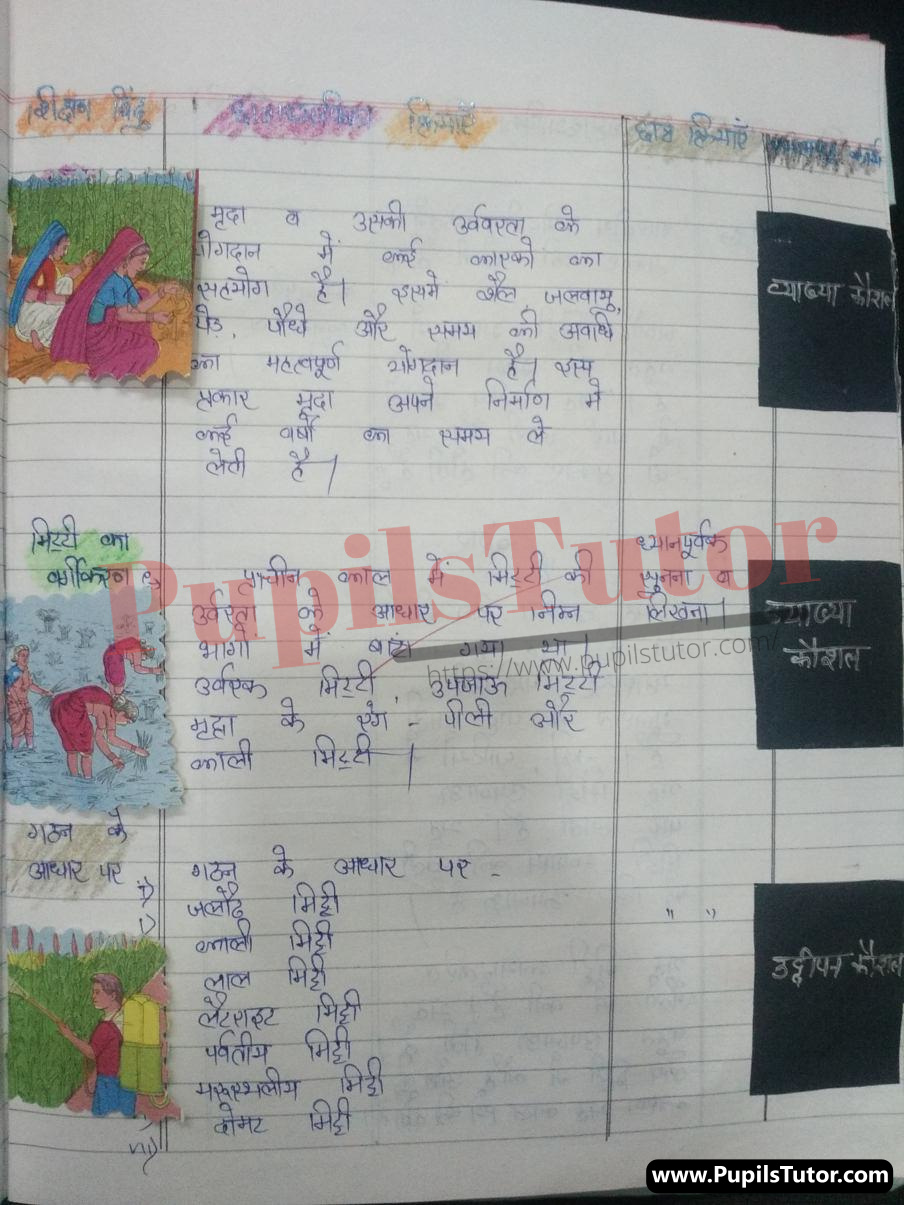 शिक्षण बिंदु
छात्राध्यापिका क्रियाएँ
छात्र क्रियाएँ
कार्य
मृदा व उसकी उर्ववरता के
योगदान में कई कारको का
सहयोग है। इसमें शैल, जलवायु,
पेड, पौधे और समय की अवधि
का महत्वपूर्ण योगदान है। इस
प्रकार मृदा अपने निर्माण मे
कई वर्षों का समय ले
लेती है।
व्याख्या कौशल
मिट्टी का
वर्गीकरण
प्राचीन काल में मिट्टी की
उर्वरता के आधार पर निम्न
भागो में बांटा गया था।
उर्वरक मिट्टी, उपजाऊ मिट्टी
मृदा के रंग - पीली और
काली मिट्टी।
ध्यानपूर्वक
सुनना व
लिखना।
व्याख्या
कौशल
गठन के
आधार पर
गठन के आधार पर -
i) जलोढ मिट्टी
काली मिट्टी
लाल मिट्टी
लैटराइट मिट्टी
पर्वतीय मिट्टी
मरूस्थलीय मिट्टी
vii) दोमट मिट्टी
" "
उद्दीपन कौशल
PupilsTutor
https://www.pupilstutor.com/
www.PupilsTutor.com